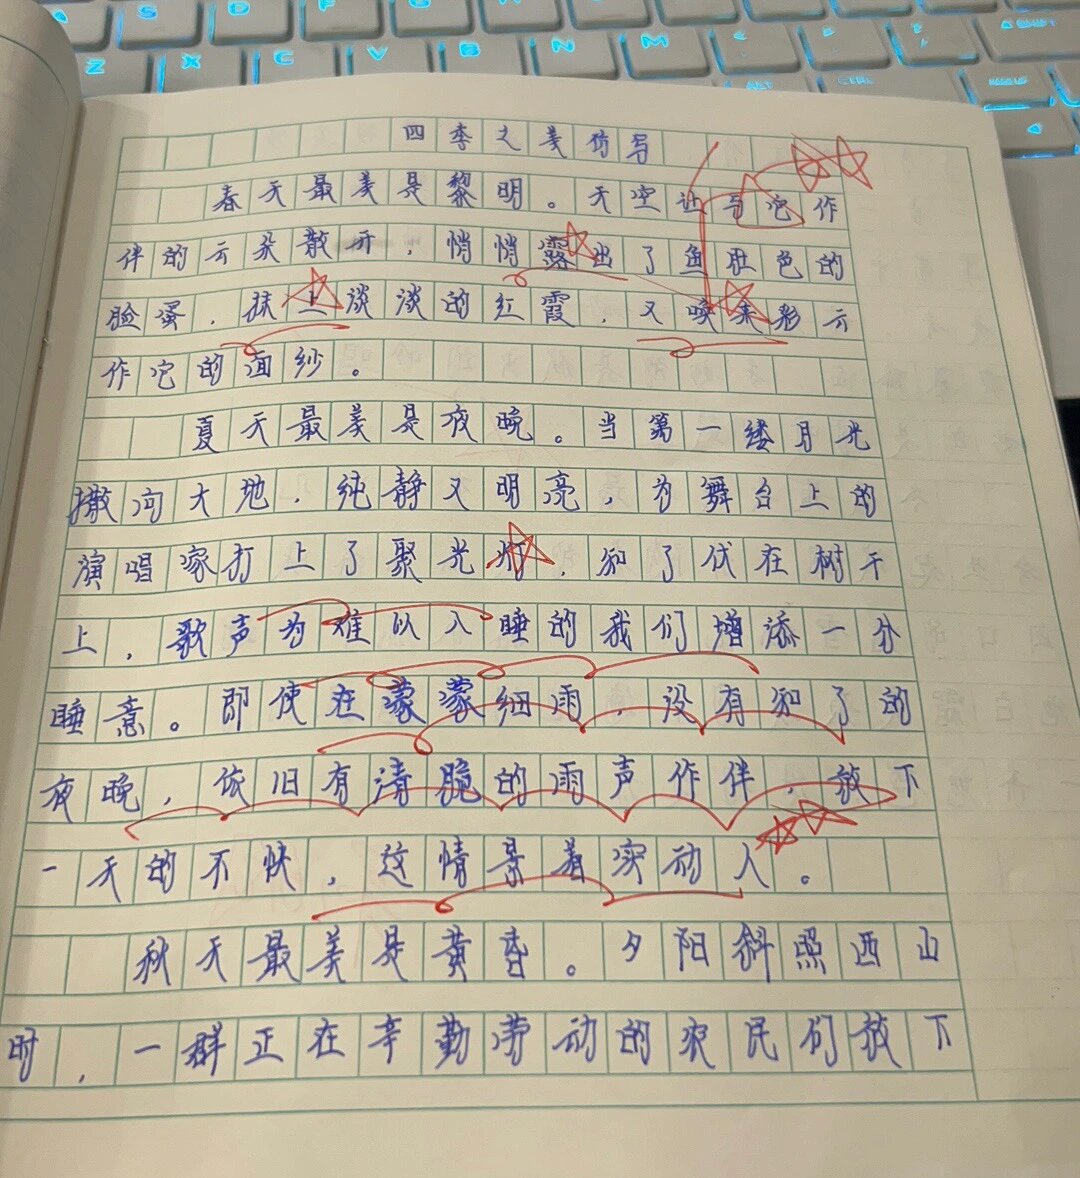 四季之美仿写
春天最美是黎明。天空让与它作
伴的云朵散开，悄悄露出了鱼肚色的
脸蛋，抹上淡淡的红霞，又唤来彩云
作它的面纱。
夏天最美是夜晚。当第一缕月光
撒向大地，纯静又明亮，为舞台上的
演唱家打上了聚光灯，知了伏在树干
上，歌声为难以入睡的我们增添一分
睡意。即使在蒙蒙细雨，没有知了的
夜晚，依旧有清脆的雨声作伴，放下
一天的不快，这情景着实动人。
秋天最美是黄昏。夕阳斜照西山
时，一群正在辛勤劳动的农民们放下